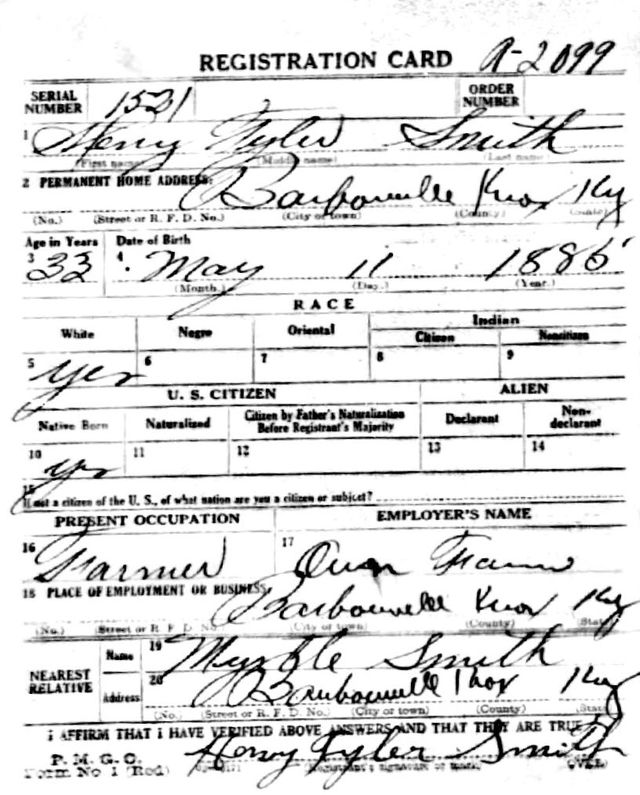 REGISTRATION CARD A-2099
SERIAL NUMBER 1521 ORDER NUMBER
1 Henry Tyler Smith
(First name) (Middle name) (Last name)
2 PERMANENT HOME ADDRESS: Barbourville Knox Ky
(No.) (Street or R. F. D. No.) (City or town) (County) (State)
Age in Years Date of Birth
3 33 4 May 11 1885
(Month.) (Day.) (Year.)
RACE
White Negro Oriental Indian
Citizen Noncitizen
5 Yes 6 7 8 9
U. S. CITIZEN ALIEN
Native Born Naturalized Citizen by Father's Naturalization Before Registrant's Majority Declarant Non-declarant
10 yes 11 12 13 14
15 If not a citizen of the U. S., of what nation are you a citizen or subject?
PRESENT OCCUPATION EMPLOYER'S NAME
16 Farmer 17 Own Farm
18 PLACE OF EMPLOYMENT OR BUSINESS: Barbourville Knox Ky
(No.) (Street or R F D. No.) (City or town) (County) (State)
NEAREST RELATIVE Name 19 Myrtle Smith
Address 20 Barbourville Knox Ky
(No.) (Street or R. F. D. No.) (City or town) (County) (State)
I AFFIRM THAT I HAVE VERIFIED ABOVE ANSWERS AND THAT THEY ARE TRUE
P. M. G. O.
Form No 1 (Red) Henry Tyler Smith
(Registrant's signature or mark) OVER